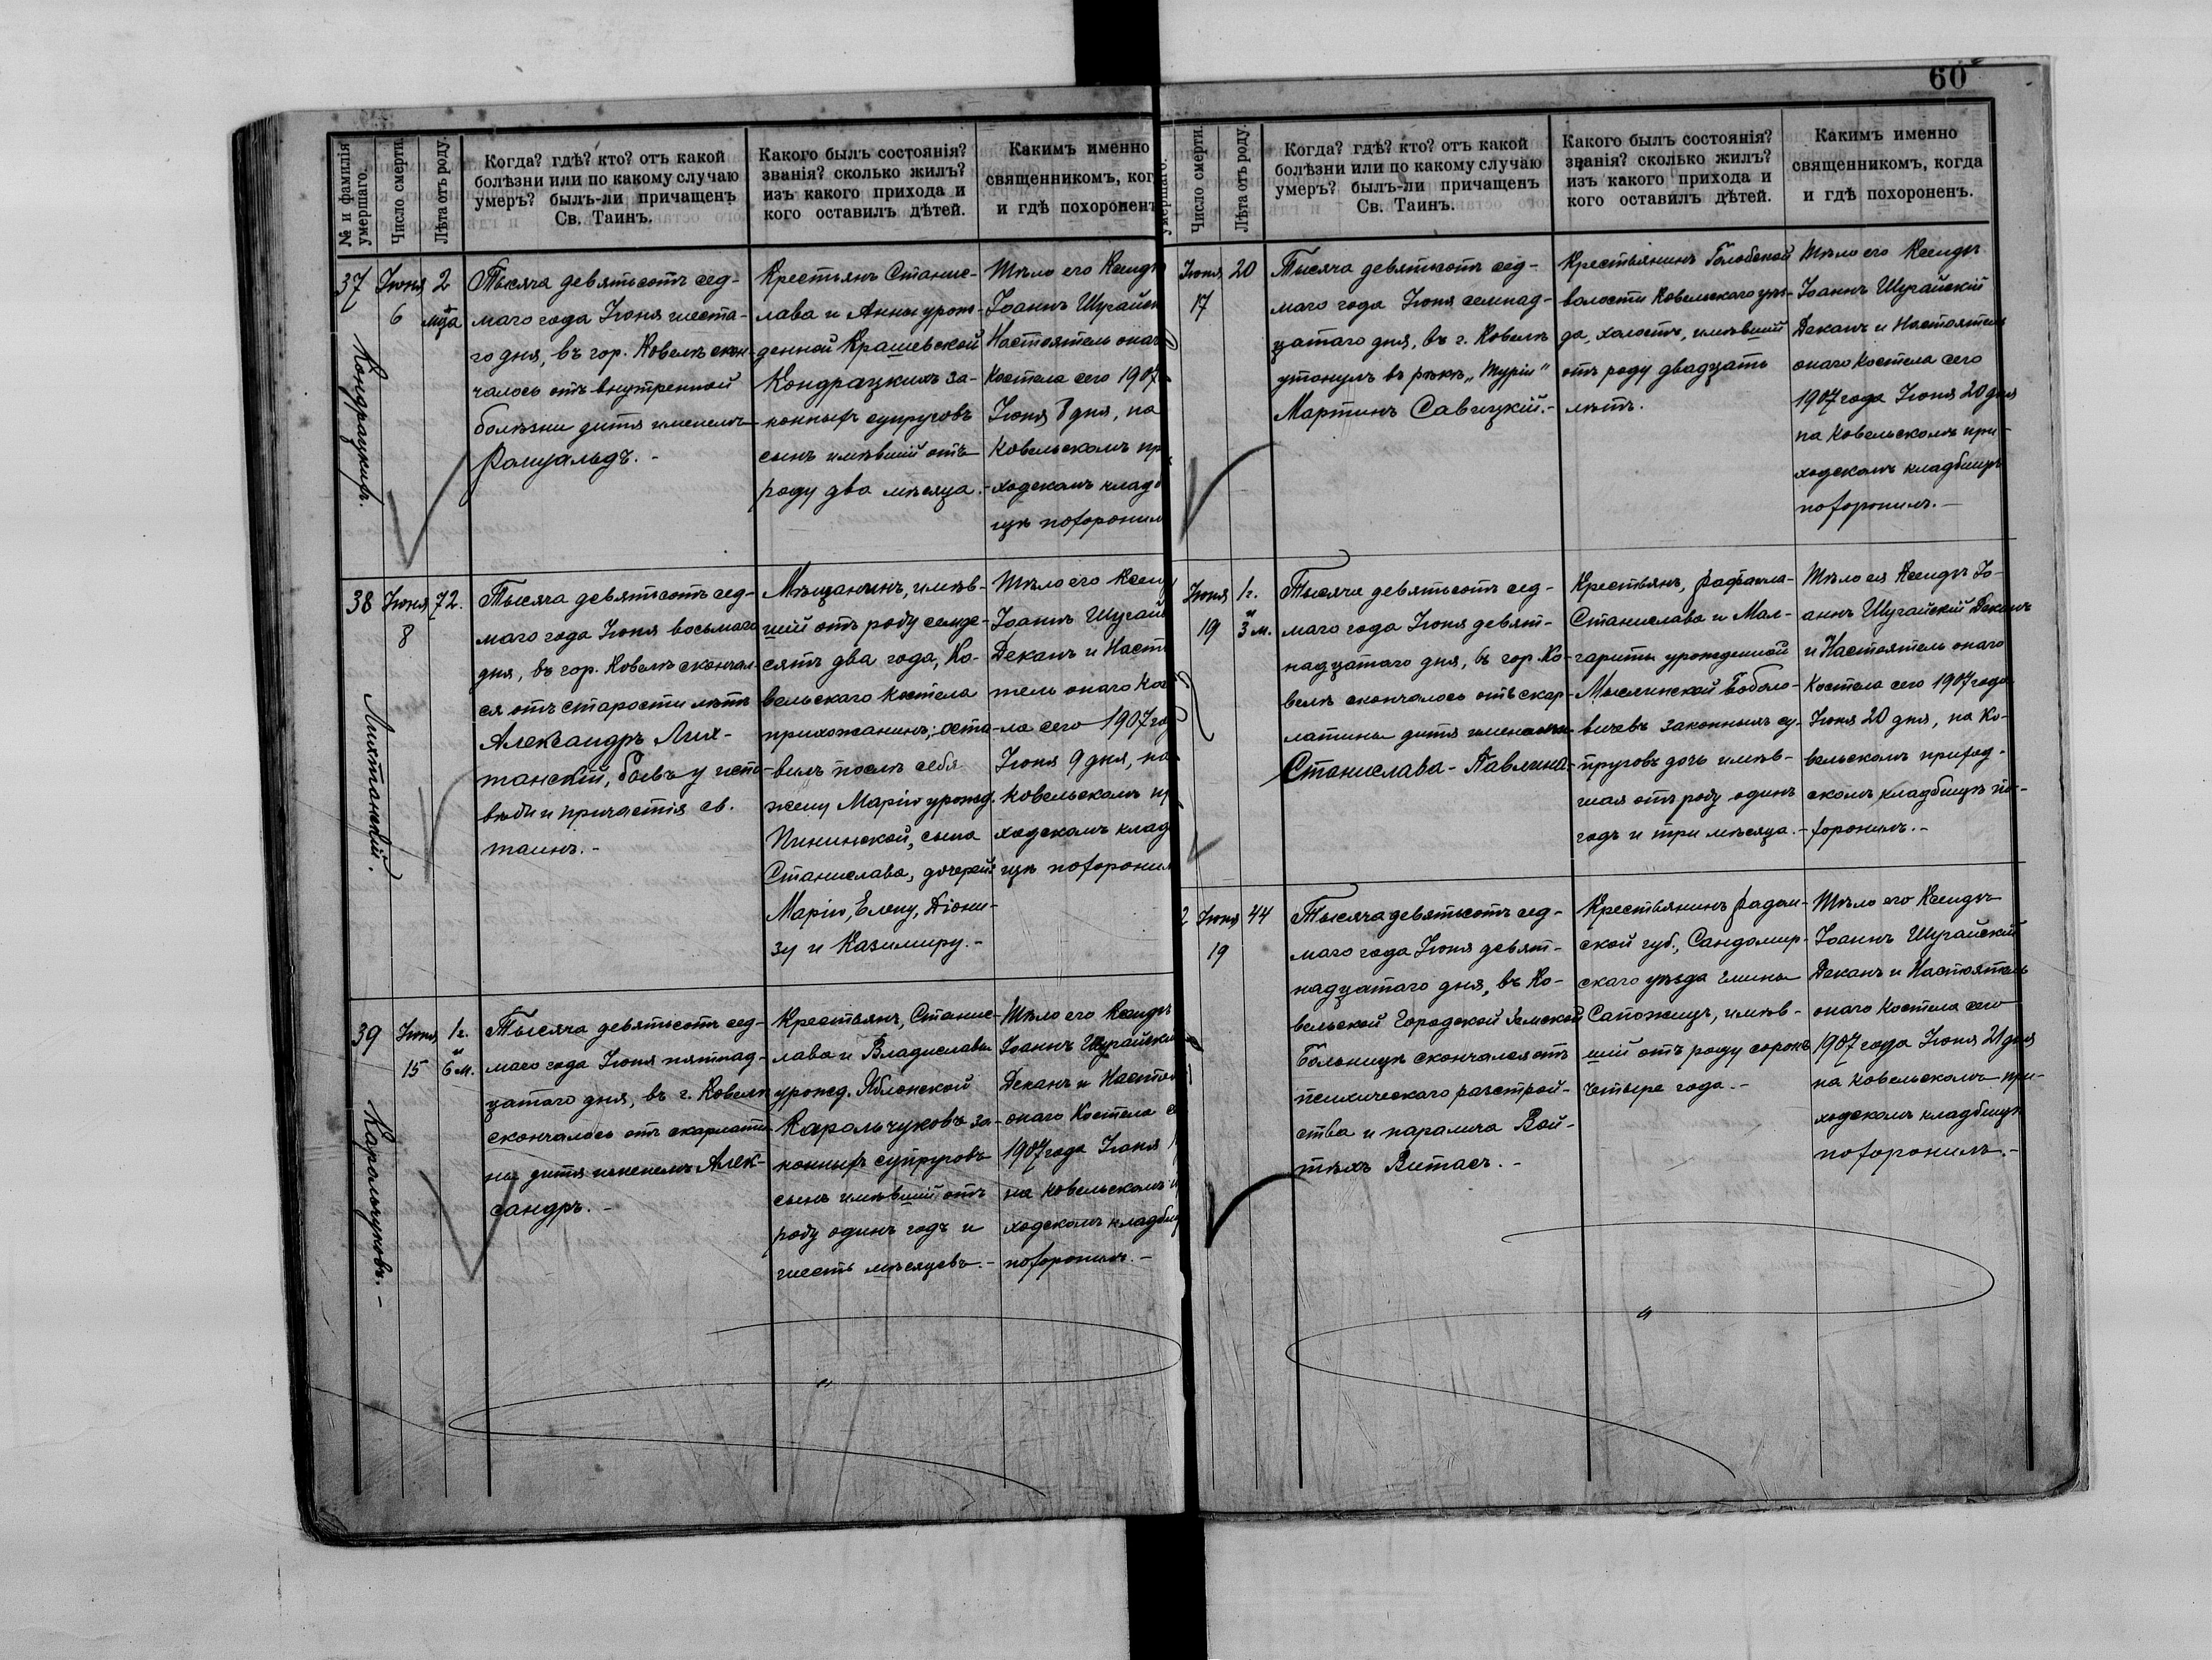 № и фамилія умершаго.
Число смерти.
Лѣта отъ роду.
Когда? гдѣ? кто? отъ какой
болѣзни или по какому случаю
умеръ? былъ-ли причащенъ
Св. Таинъ.
Какого былъ состоянія?
званія? сколько жилъ?
изъ какого прихода и
кого оставилъ дѣтей.
Какимъ именно
священникомъ, ког
и гдѣ похороненъ
37
Кондрацкихъ.
Іюня
6
2
мца
Тысяча девятьсотъ сед-
маго года Іюня шеста-
го дня, въ гор. Ковелѣ скон-
чалось отъ внутренной
болѣзни дитя именемъ
Ромуальдъ. -
Крестьянъ Станис-
лава и Анны урож-
денной Крашевской
Кондрацкихъ за-
конныхъ супруговъ
сынъ имѣвшій отъ
роду два мѣсяца. -
Тѣло его Ксендз
Іоаннъ Шугайск
Настоятель онаг
Костела сего 1907
Іюня 8 дня, на
Ковельскомъ пр
ходскомъ кладб
щѣ похоронил
38
Лихтанскій.
Іюня
8
72.
Тысяча девятьсотъ сед-
маго года Іюня восьмаго
дня, въ гор. Ковелѣ скончал-
ся отъ старости лѣтъ
Александръ Лих-
танскій, бывъ у испо-
вѣди и причастія св.
таинъ. -
Мѣщанинъ, имѣв-
шій отъ роду семде-
сятъ два года, Ко-
вельскаго Костела
прихожанинъ; оста-
вилъ послѣ себя
жену Марію урожд.
Пининской, сына
Станислава, дочерей
Марію, Елену, Діони-
зу и Казимиру. -
Тѣло его Ксенд
Іоаннъ Шугай
Деканъ и Насто
тель онаго Кос
ла сего 1907 го
Іюня 9 дня, на
Ковельскомъ пр
ходскомъ клад
щѣ похоронил
39
Каральчуковъ. -
Іюня
15
1 г.
и
6 м.
Тысяча девятьсотъ сед-
маго года Іюня пятнад-
цатаго дня, въ г. Ковелѣ
скончалось отъ скарлати-
ны дитя именемъ Алек-
сандръ. -
Крестьянъ, Станис-
лава и Владиславы
урожд. Яблонской
Каральчуковъ за-
конныхъ супруговъ
сынъ имѣвшій отъ
роду одинъ годъ и
шесть мѣсяцевъ. -
Тѣло его Ксендзъ
Іоаннъ Шугайскі
Деканъ и Настоя
онаго Костела с
1907 года Іюня
на Ковельскомъ п
ходскомъ кладби
похоронилъ. -
60
умершаго.
Число смерти.
Лѣта отъ роду.
Когда? гдѣ? кто? отъ какой
болѣзни или по какому случаю
умеръ? былъ-ли причащенъ
Св. Таинъ.
Какого былъ состоянія?
званія? сколько жилъ?
изъ какого прихода и
кого оставилъ дѣтей.
Какимъ именно
священникомъ, когда
и гдѣ похороненъ.
Іюня
17
20
Тысяча девятьсотъ сед-
маго года Іюня семнад-
цатаго дня, въ г. Ковелѣ
утонулъ въ рѣкѣ „Туріи"
Мартинъ Савицкій. -
Крестьянинъ Голобской
волости Ковельскаго уѣз-
да, холостъ, имѣвшій
отъ роду двадцать
лѣтъ.
Тѣло его Ксендзъ
Іоаннъ Шугайскій
Деканъ и Настоятель
онаго Костела сего
1907 года Іюня 20 дня
на Ковельскомъ при-
ходскомъ кладбищѣ
похоронилъ. -
Іюня
19
1 г.
и
3 м.
Тысяча девятьсотъ сед-
маго года Іюня девят-
надцатаго дня, въ гор. Ко-
велѣ скончалось отъ скар-
латины дитя именемъ
Станислава-Павлина.
Крестьянъ, Рафаила-
Станислава и Мал-
гариты урожденной
Мыслинской Боболо-
вичевъ законныхъ су-
пруговъ дочь имѣв-
шая отъ роду одинъ
годъ и три мѣсяца. -
Тѣло ея Ксендзъ Іо-
аннъ Шугайскій Деканъ
и Настоятель онаго
Костела сего 1907 года
Іюня 20 дня, на Ко-
вельскомъ приход-
скомъ кладбищѣ по-
хоронилъ. -
2
Іюня
19
44
Тысяча девятьсотъ сед-
маго года Іюня девят-
надцатаго дня, въ Ко-
вельской Городской Земской
Больницѣ скончался отъ
психическаго разстрой-
ства и паралича Вой-
тѣхъ Витасъ. -
Крестьянинъ Радом-
ской губ., Сандомир-
скаго уѣзда гмины
Сапожищъ, имѣв-
шій отъ роду сорокъ
четыре года. -
Тѣло его Ксендзъ
Іоаннъ Шугайскій
Деканъ и Настоятель
онаго Костела сего
1907 года Іюня 21 дня
на Ковельскомъ при-
ходскомъ кладбищѣ
похоронилъ. -